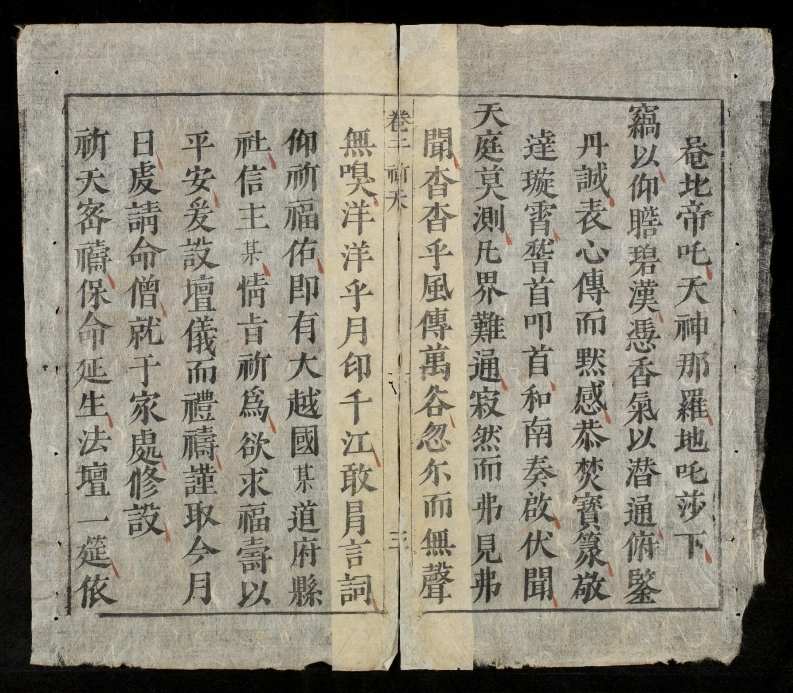 菴地帝吒天神那羅地吒莎下
竊以仰瞻碧漢憑香氣以潜通俯鑒
丹誠表心傳而黙感恭焚寳篆敬
達璇霄䭬首叩首和南奏啟伏聞
天庭莫測凡界難通寂然而弗見弗
聞杳杳乎風傳萬谷忽尓而無聲
卷二 祈天 三
無嗅洋洋乎月印千江敢冐言詞
仰祈福佑即有大越國某道府縣
社信主某情旨祈爲欲求福壽以
平安爰設壇儀而禮禱謹取今月
日䖏請命僧就于家處修設
祈天宻禱保命延生法壇一筵依